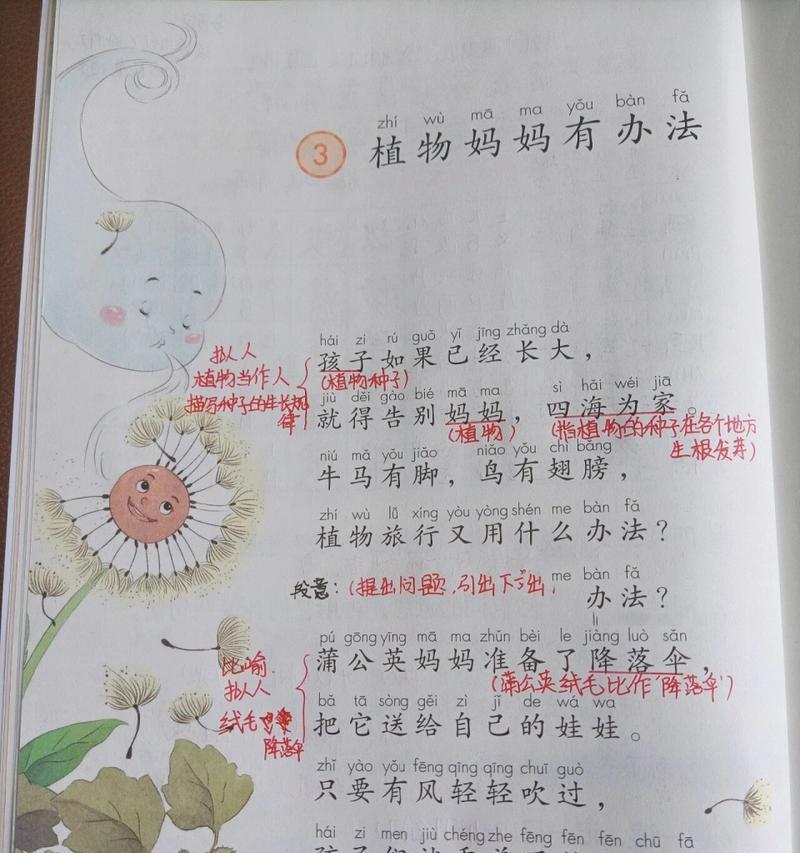 zhí wù mā ma yǒu bàn fǎ
3 植物妈妈有办法
hái zi rú guǒ yǐ jīng zhǎng dà
孩子如果已经长大，
拟人
植物当作人
描写种子的生长规律
(植物种子)
jiù děi gào bié mā ma sì hǎi wéi jiā
就得告别妈妈，四海为家。
(植物)
(指植物的种子在各个地方
生根发芽)
niú mǎ yǒu jiǎo niǎo yǒu chì bǎng
牛马有脚，鸟有翅膀，
zhí wù lǚ xíng yòu yòng shén me bàn fǎ
植物旅行又用什么办法？
段意：(提出问题，引出下
me bàn fǎ
办法？
pú gōng yīng mā ma zhǔn bèi le jiàng luò sǎn
蒲公英妈妈准备了降落伞，
比喻
拟人
绒毛
降落伞
(蒲公英绒毛比作“降落伞”)
bǎ tā sòng gěi zì jǐ de wá wa
把它送给自己的娃娃。
zhǐ yào yǒu fēng qīng qīng chuī guò
只要有风轻轻吹过，
hái zi men jiù chéng zhe fēng fēn fēn chū fā